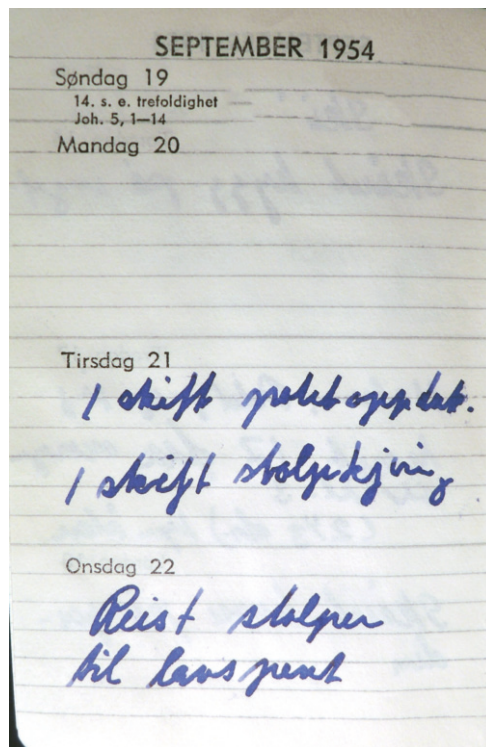 SEPTEMBER 1954
Søndag 19
14. s. e. trefoldighet
Joh. 5, 1—14
Mandag 20
Tirsdag 21
1 skift potetopptak.
1 skift stolpekjøring
Onsdag 22
Reist stolper
til lavspent